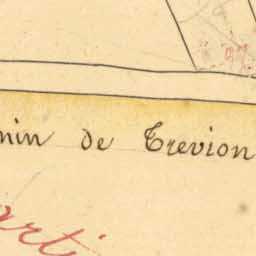 min de Trevion
arti